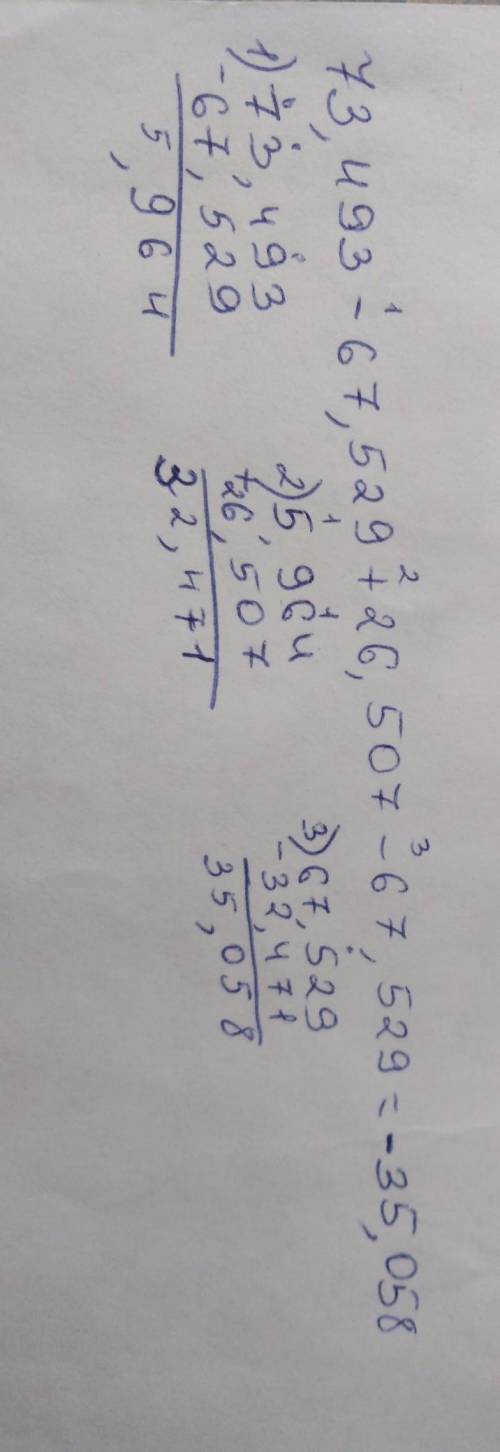 73,493 - 67,529 + 26,507 - 67,529 = -35,058
1 2 3
1) 73,493
- 67,529
5,964
2) 5,964
+ 26,507
32,471
3) 67,529
- 32,471
35,058